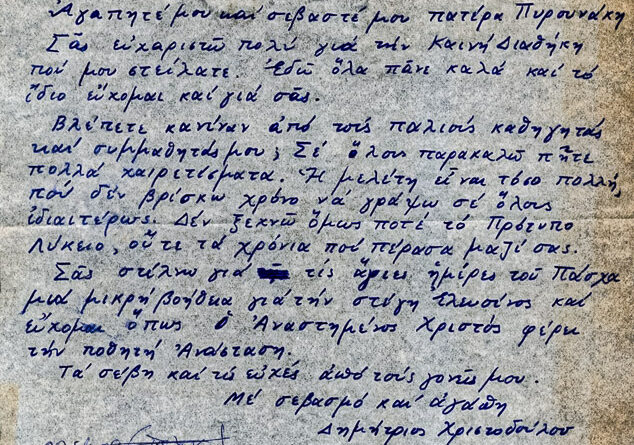 Ἀγαπητέ μου καί σεβαστέ μου πατέρα Πυρουνάκη
Σᾶς εὐχαριστῶ πολύ γιά τήν Καινή Διαθήκη
πού μου στείλατε. Ἐδῶ ὅλα πᾶνε καλά καί τό
ἴδιο εὔχομαι καί γιά σᾶς.
Βλέπετε κανέναν ἀπό τούς παλιούς καθηγητάς
καί συμμαθητάς μου; Σέ ὅλους παρακαλῶ πῆτε
πολλά χαιρετίσματα. Ἡ μελέτη εἶναι τόσο πολλή,
πού δέν βρίσκω χρόνο νά γράψω σέ ὅλους
ἰδιαιτέρως. Δέν ξεχνῶ ὅμως ποτέ τό Πρότυπο
Λύκειο, οὔτε τά χρόνια πού πέρασα μαζί σας.
Σᾶς στέλνω γιά τίς ἅγιες ἡμέρες τοῦ Πάσχα
μιά μικρή βοήθεια γιά τήν στέγη Ἐλευσῖνος καί
εὔχομαι ὅπως ὁ Ἀναστημένος Χριστός φέρει
τήν ποθητή Ἀνάσταση.
Τά σέβη καί τίς εὐχές ἀπό τούς γονεῖς μου.
Μέ σεβασμό καί ἀγάπη
Δημήτριος Χριστοδούλου